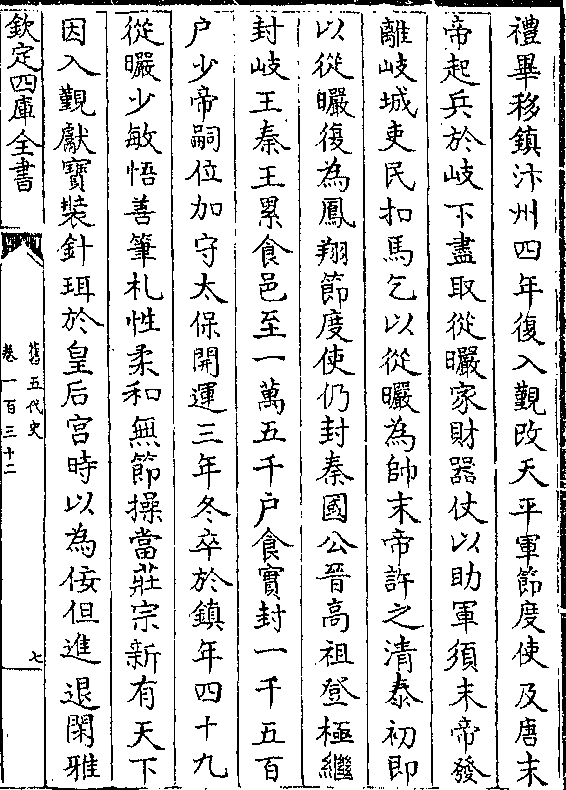 禮畢移鎮汴州四年復入觀改天平軍節度使及唐末
帝起兵於岐下盡取從曮家財器仗以助軍須末帝發
離岐城吏民扣馬乞以從曮為帥末帝許之清泰初即
以從曮復為鳳翔節度使仍封秦國公晉高祖登極繼
封岐王秦王累食邑至一萬五千户食實封一千五百
户少帝嗣位加守太保開運三年冬卒於鎮年四十九
從曮少敏悟善筆札性柔和無節操當莊宗新有天下
因入覲獻寶裝針珥於皇后宮時以為佞但進退閑雅
欽定四庫全書
舊五代史
卷一百三十二
七